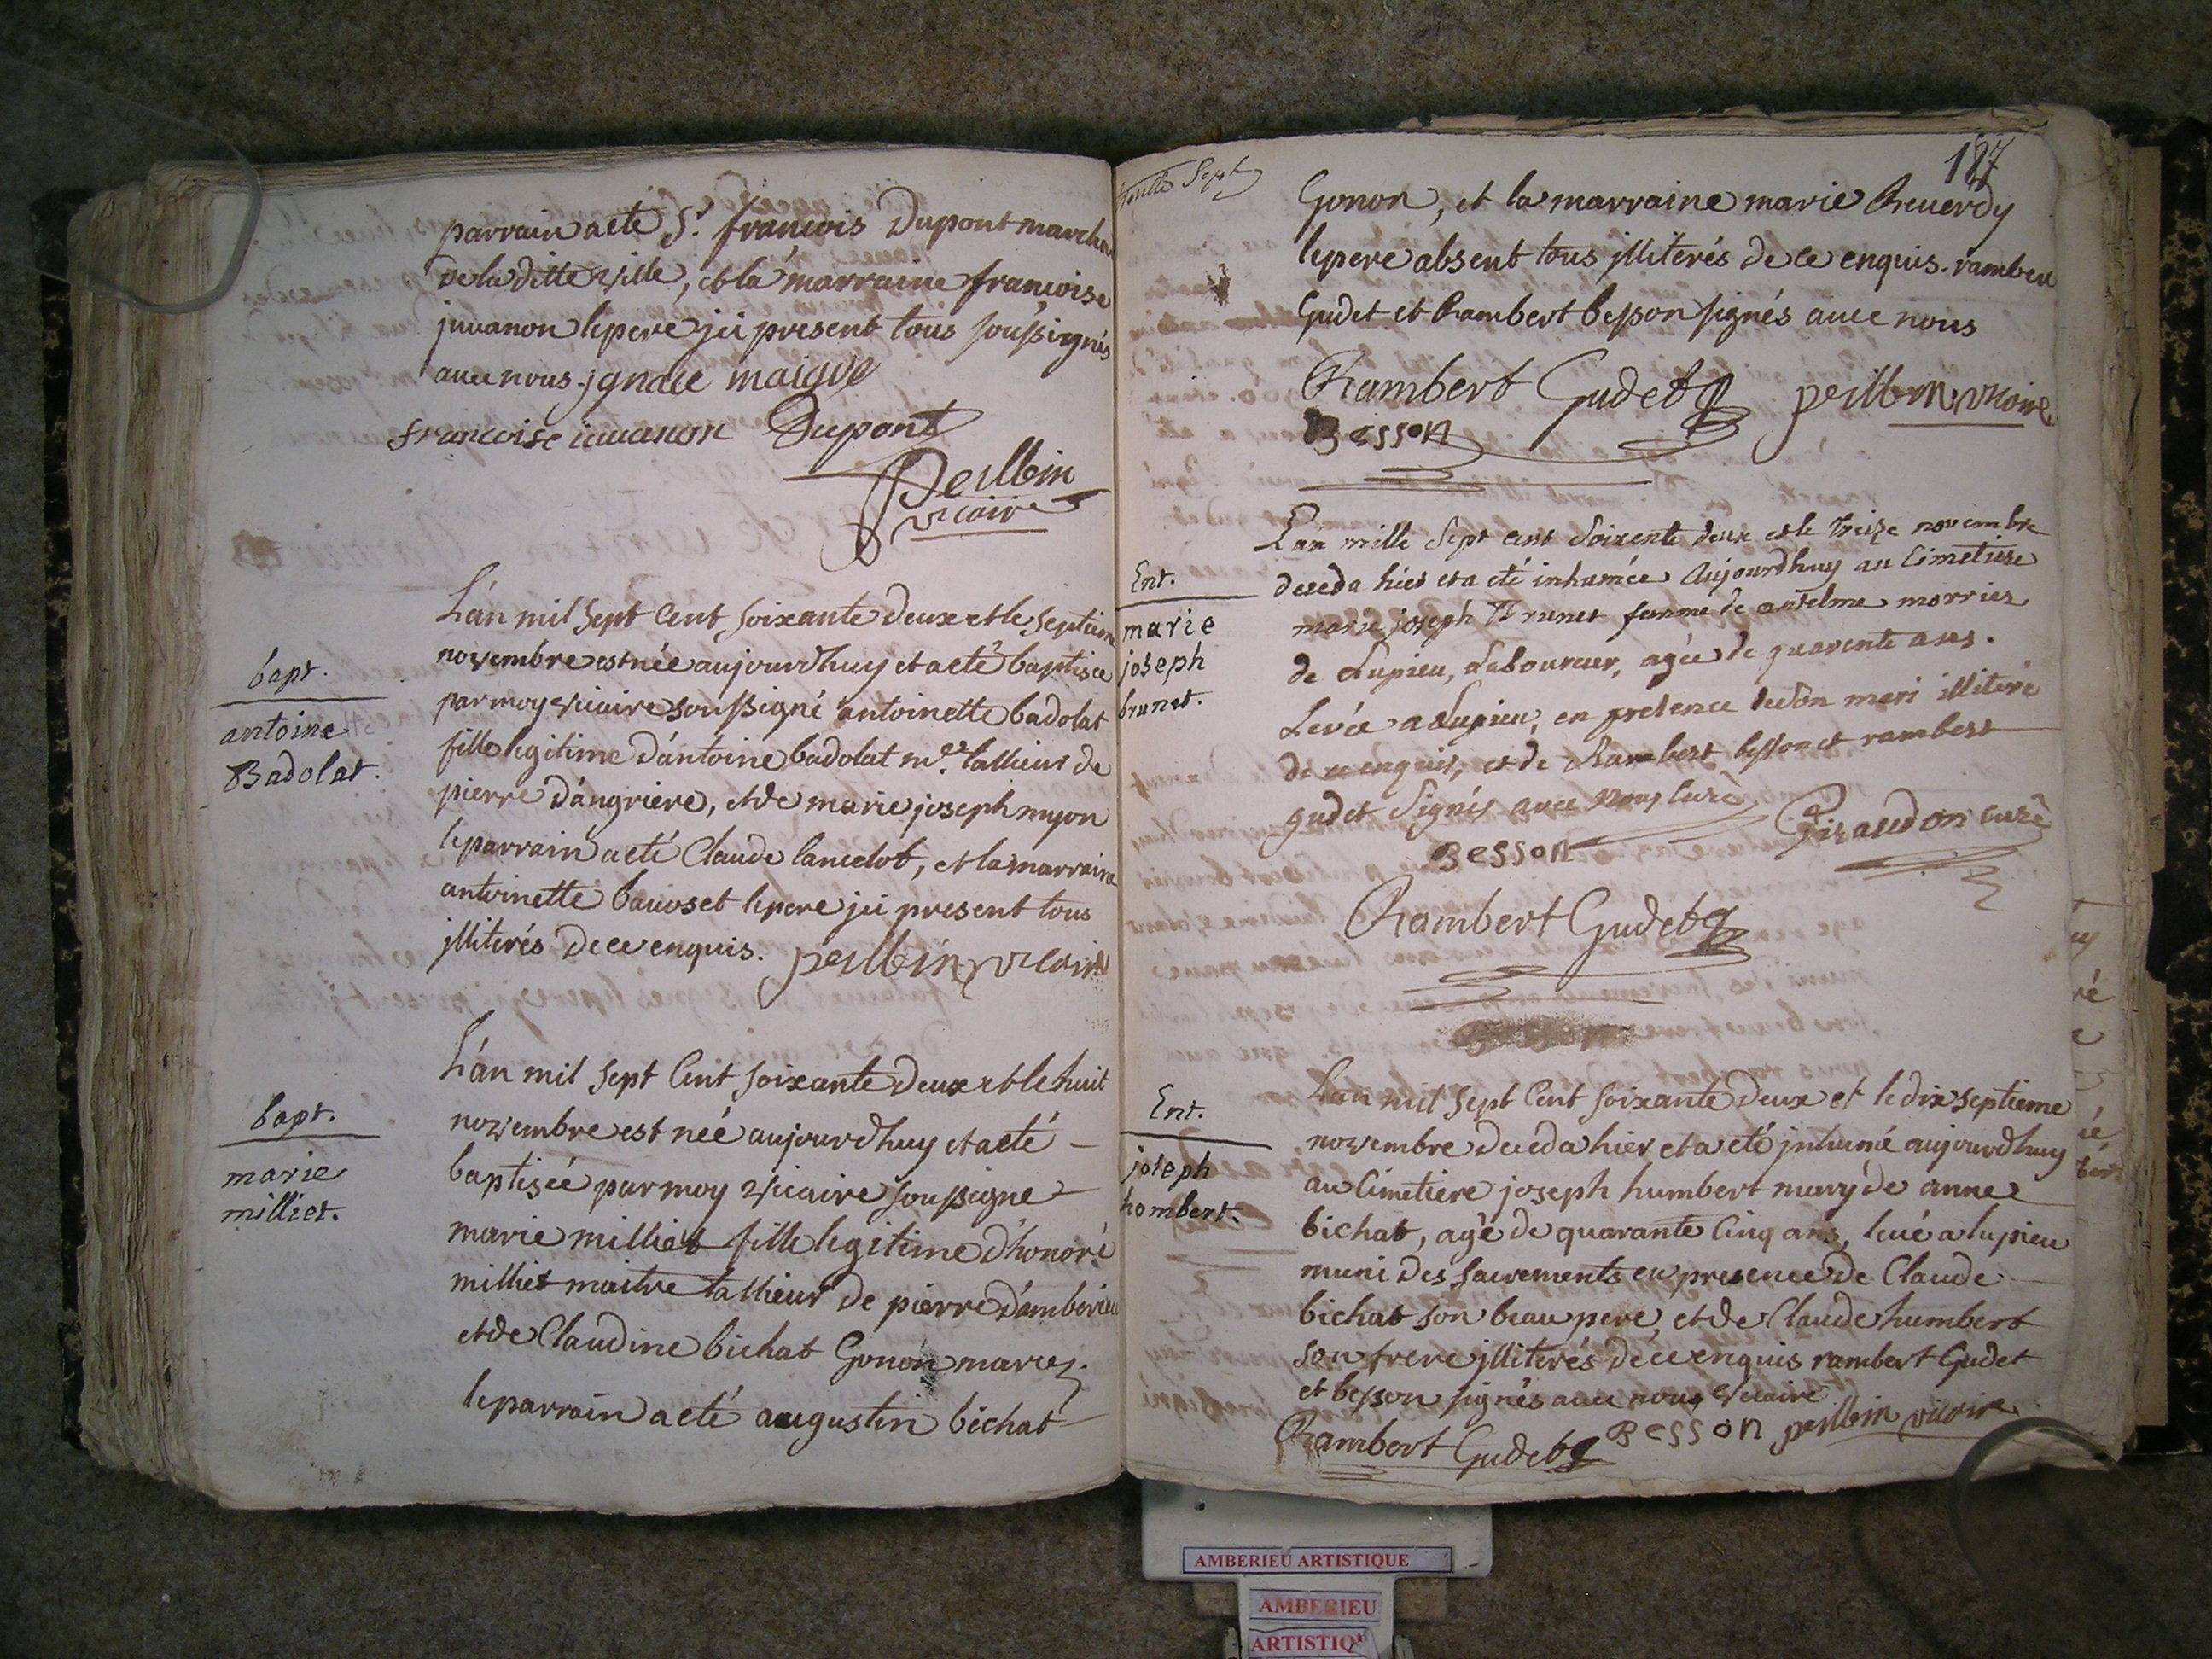 parrain a eté Sr. francois Dupont marchan
de la ditte ville, et la marraine francoise
juuanon le pere jci present tous soussignés
auec nous. jgnace maigre
francoise iuuanon Dupont
Peillbin
vicaire
L'an mil sept Cent soixante deux et le septiem
bapt.
novembre est née aujourd'huy et a eté baptisée
antoine
par moy vicaire soussigné antoinette badolat
Badolat.
fille legitime d'antoine badolat me. tallieur de
pierre d'angriere, et de marie joseph myon
le parrain a eté Claude lancelot, et la marraine
antoinette bauoset le pere jci present tous
jlliterés de ce enquis. peillbin vicaire
L'an mil sept Cent soixante deux et le huit
bapt.
novembre est née aujourd'huy et a eté
marie
baptisée par moy vicaire soussigne
milliet.
marie milliet fille legitime d'honoré
milliet maitre tallieur de pierre d'amberieu
et de Claudine bichat Gonon mariez.
le parrain a eté augustin bichat
187
Sept
Gonon, et la marraine marie Reuerdy
le pere absent tous jlliterés de ce enquis. rambert
Gudet et Rambert besson signés auec nous
Rambert Gudet peillbin vicaire
Besson
L'an mille Sept cent Soixente deux et le treize novembre
Ent.
deceda hier et a eté inhumée Aujourdhuy au Cimetiere
marie
marie joseph Brunet femme de anselme morrier
joseph
de Lupieu, Laboureur, agée de quarente ans.
brunet.
Levée a Lupieu, en presence de son mari illiteré
de ce enquis, et de Rambert besson et rambert
gudet Signés auec Nous Curé
Besson Giraudon curé
Rambert Gudet
L'an mil sept Cent soixante deux et le dix septieme
Ent.
novembre deceda hier et a eté jnhumé aujourd'huy
joseph
au Cimetiere joseph humbert mary de anne
hombert.
bichat, agé de quarante Cinq ans, leué a lupieu
muni des sacrements en presence de Claude
bichat son beau pere, et de Claude humbert
son frere jlliterés de ce enquis rambert Gudet
et besson signés auec nous vicaire
Rambert Gudet Besson peillbin vicaire
AMBERIEU ARTISTIQUE
AMBERIEU
ARTISTIQ